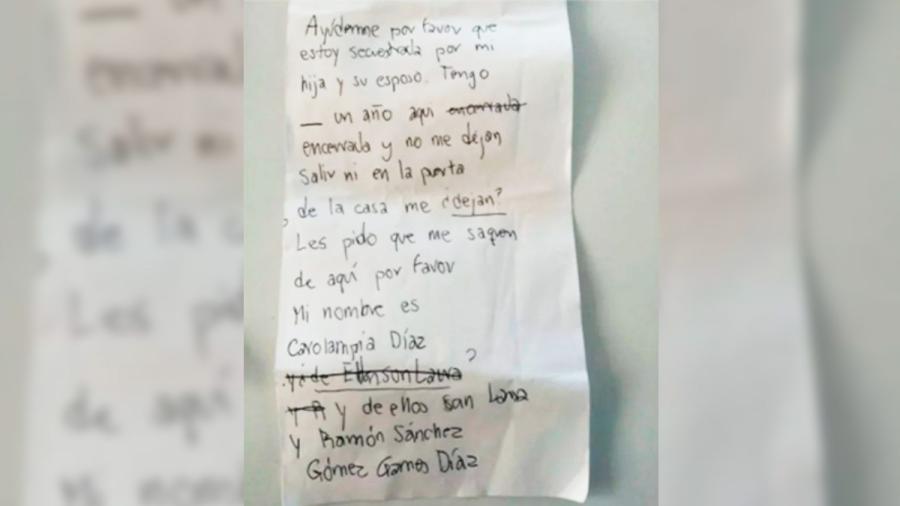 Ayúdenme por favor que
estoy secuestrada por mi
hija y su esposo. Tengo
— un año aqui encerrada
encerrada y no me dejan
Salir ni en la puerta
de la casa me ¿dejan?
Les pido que me saquen
de aquí por favor
Mi nombre es
Carolampia Díaz
?
y de ellos son
y Ramón Sánchez
Gómez Games Díaz